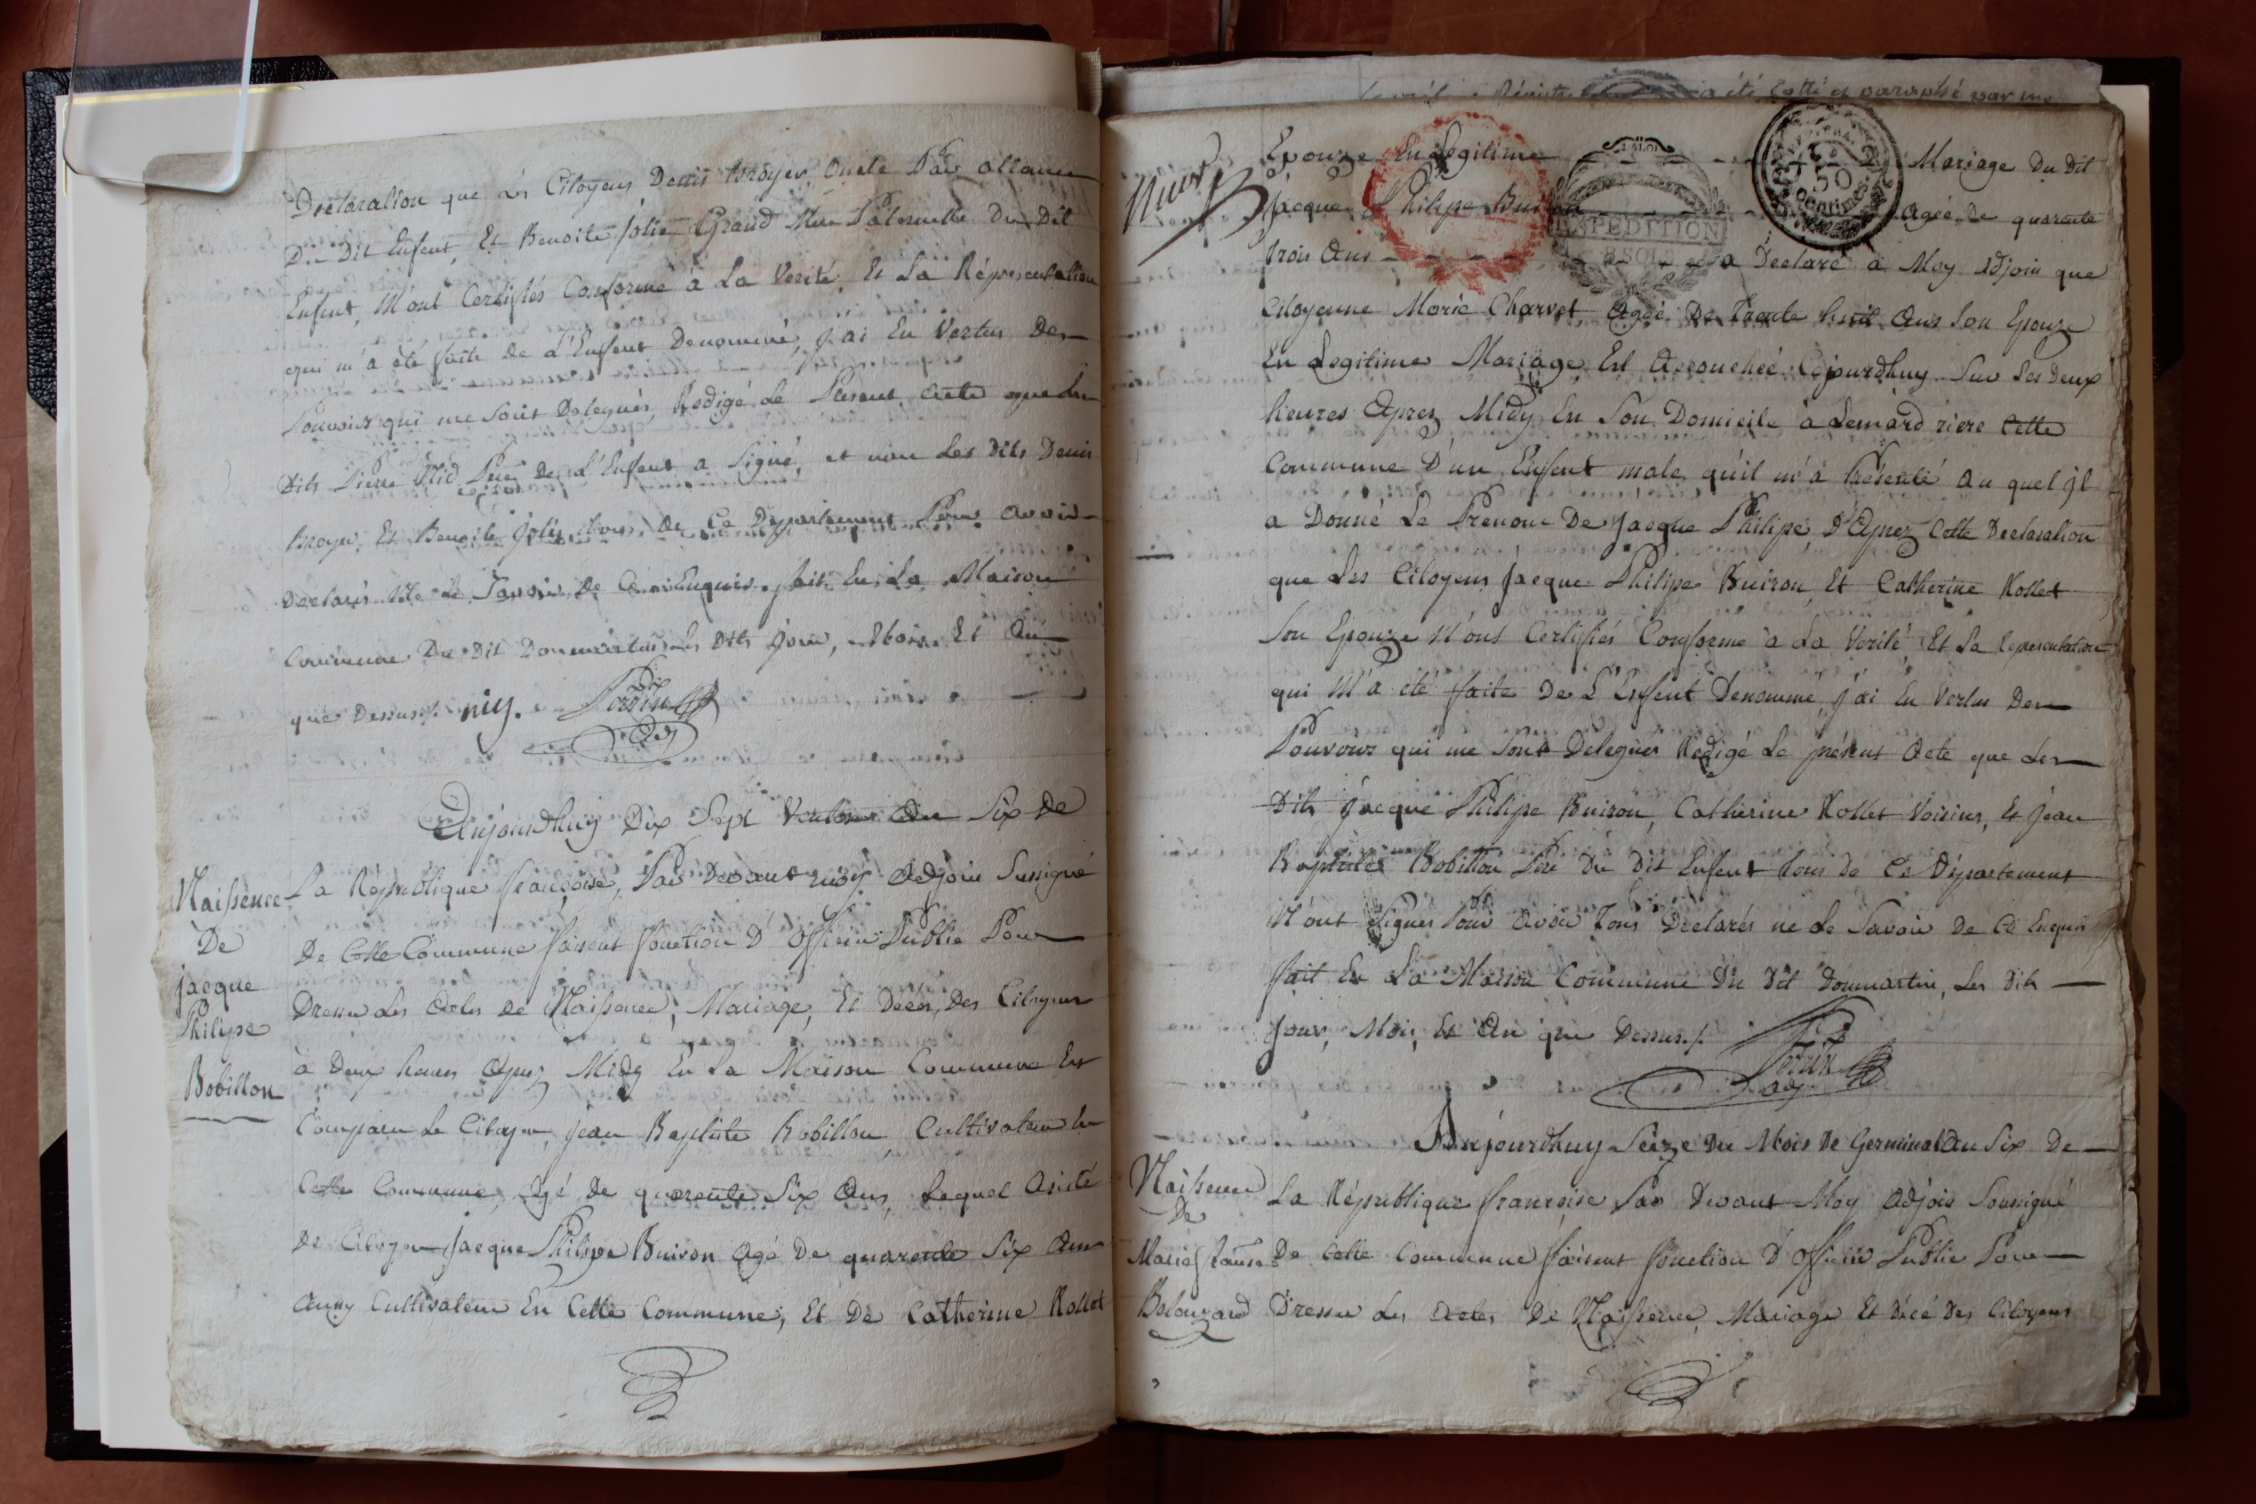 Declaration que les Citoyens Denis Broyer Oncle Par alliance
Du Dit Enfent, Et Benoite Jolie Grand Mere Paternelle Du Dit
Enfent, M'ont Certifiés Conforme à La Verité, Et La Répresentation
qui m'a été faite de L'Enfent Denommé, J'ai En Vertus Des
Pouvoirs qui me Sont Delegués, Redigé Le Présent Acte que Les
Dits Pierre Père De L'Enfent a Signé, et non Les Dits Denis
Broyer, Et Benoite Jolie, tous de Ce Département Pour avoir
Declarés Ne Le Savoir De Ce Enquis. fait En La Maison
Commune Du Dit Dommartin Les Dits Jour, Mois, Et An
que Dessus./.
Perrin
Adj
Aujourdhuy Dix Sept Ventose An Six De
Naissence
De
Jacque
Philipe
Bobillon
La République françoise, Par Devant moy Adjoin Sussigné
De Cette Commune faisent fonction D'Officier Public Pour
Dresser Les Actes de Naissence, Mariage, Et Décès, Des Citoyens
à Deux heures Apres Midy En La Maison Commune Est
Comparu Le Citoyen Jean Baptiste Bobillon Cultivateur En
Cette Commune, Agé de quarente Six Ans, Lequel Asisté
De Citoyen Jacque Philipe Buiron Agé De quarente Six Ans
Aussy Cultivateur En Cette Commune, Et De Catherine Rollet
Epouze En Legitime Mariage Du Dit
Jacque Philipe Buiron Agée De quarente
trois Ans a Déclaré à Moy Adjoin que
Citoyenne Marie Charvet, Agée De Trente huit Ans Son Epouze
En Legitime Mariage, Est Accouchée Cejourdhuy Sur Les Deux
heures Apres Midy En Son Domicile à Lemard riere Cette
Commune D'un Enfent male, qu'il m'a Présenté Au quel Jl
a Donné Le Prenom De Jacque Philipe, D'Apres Cette Declaration
que Les Citoyens Jacque Philipe Buiron, Et Catherine Rollet
Son Epouze M'ont Certifiés Conforme à La Verité, Et La Representation
qui M'a été faite De L'Enfent Denommé, J'ai En Vertus Des
Pouvoirs qui me Sont Delegués Redigé Le présent Acte que Les
Dits Jacque Philipe Buiron, Catherine Rollet Voisins, Et Jean
Baptiste Bobillon Père Du Dit Enfent tous de Ce Département
N'ont Signés Pour Avoir Tous Declarés ne Le Savoir De Ce Enquis
fait En La Maison Commune Du Dit Dommartin, Les Dits
Jour, Mois, Et An que Dessus./.
Perrin
Adj
EXPEDITION
50
Centimes
Aujourdhuy Seize Du Mois De Germinal An Six De
Naissence
De
La République françoise Par Devant Moy Adjoin Soussigné
De Cette Commune faisent fonction D'Officier Public Pour
Dresser Les Actes De Naissence, Mariage Et Décé Des Citoyens